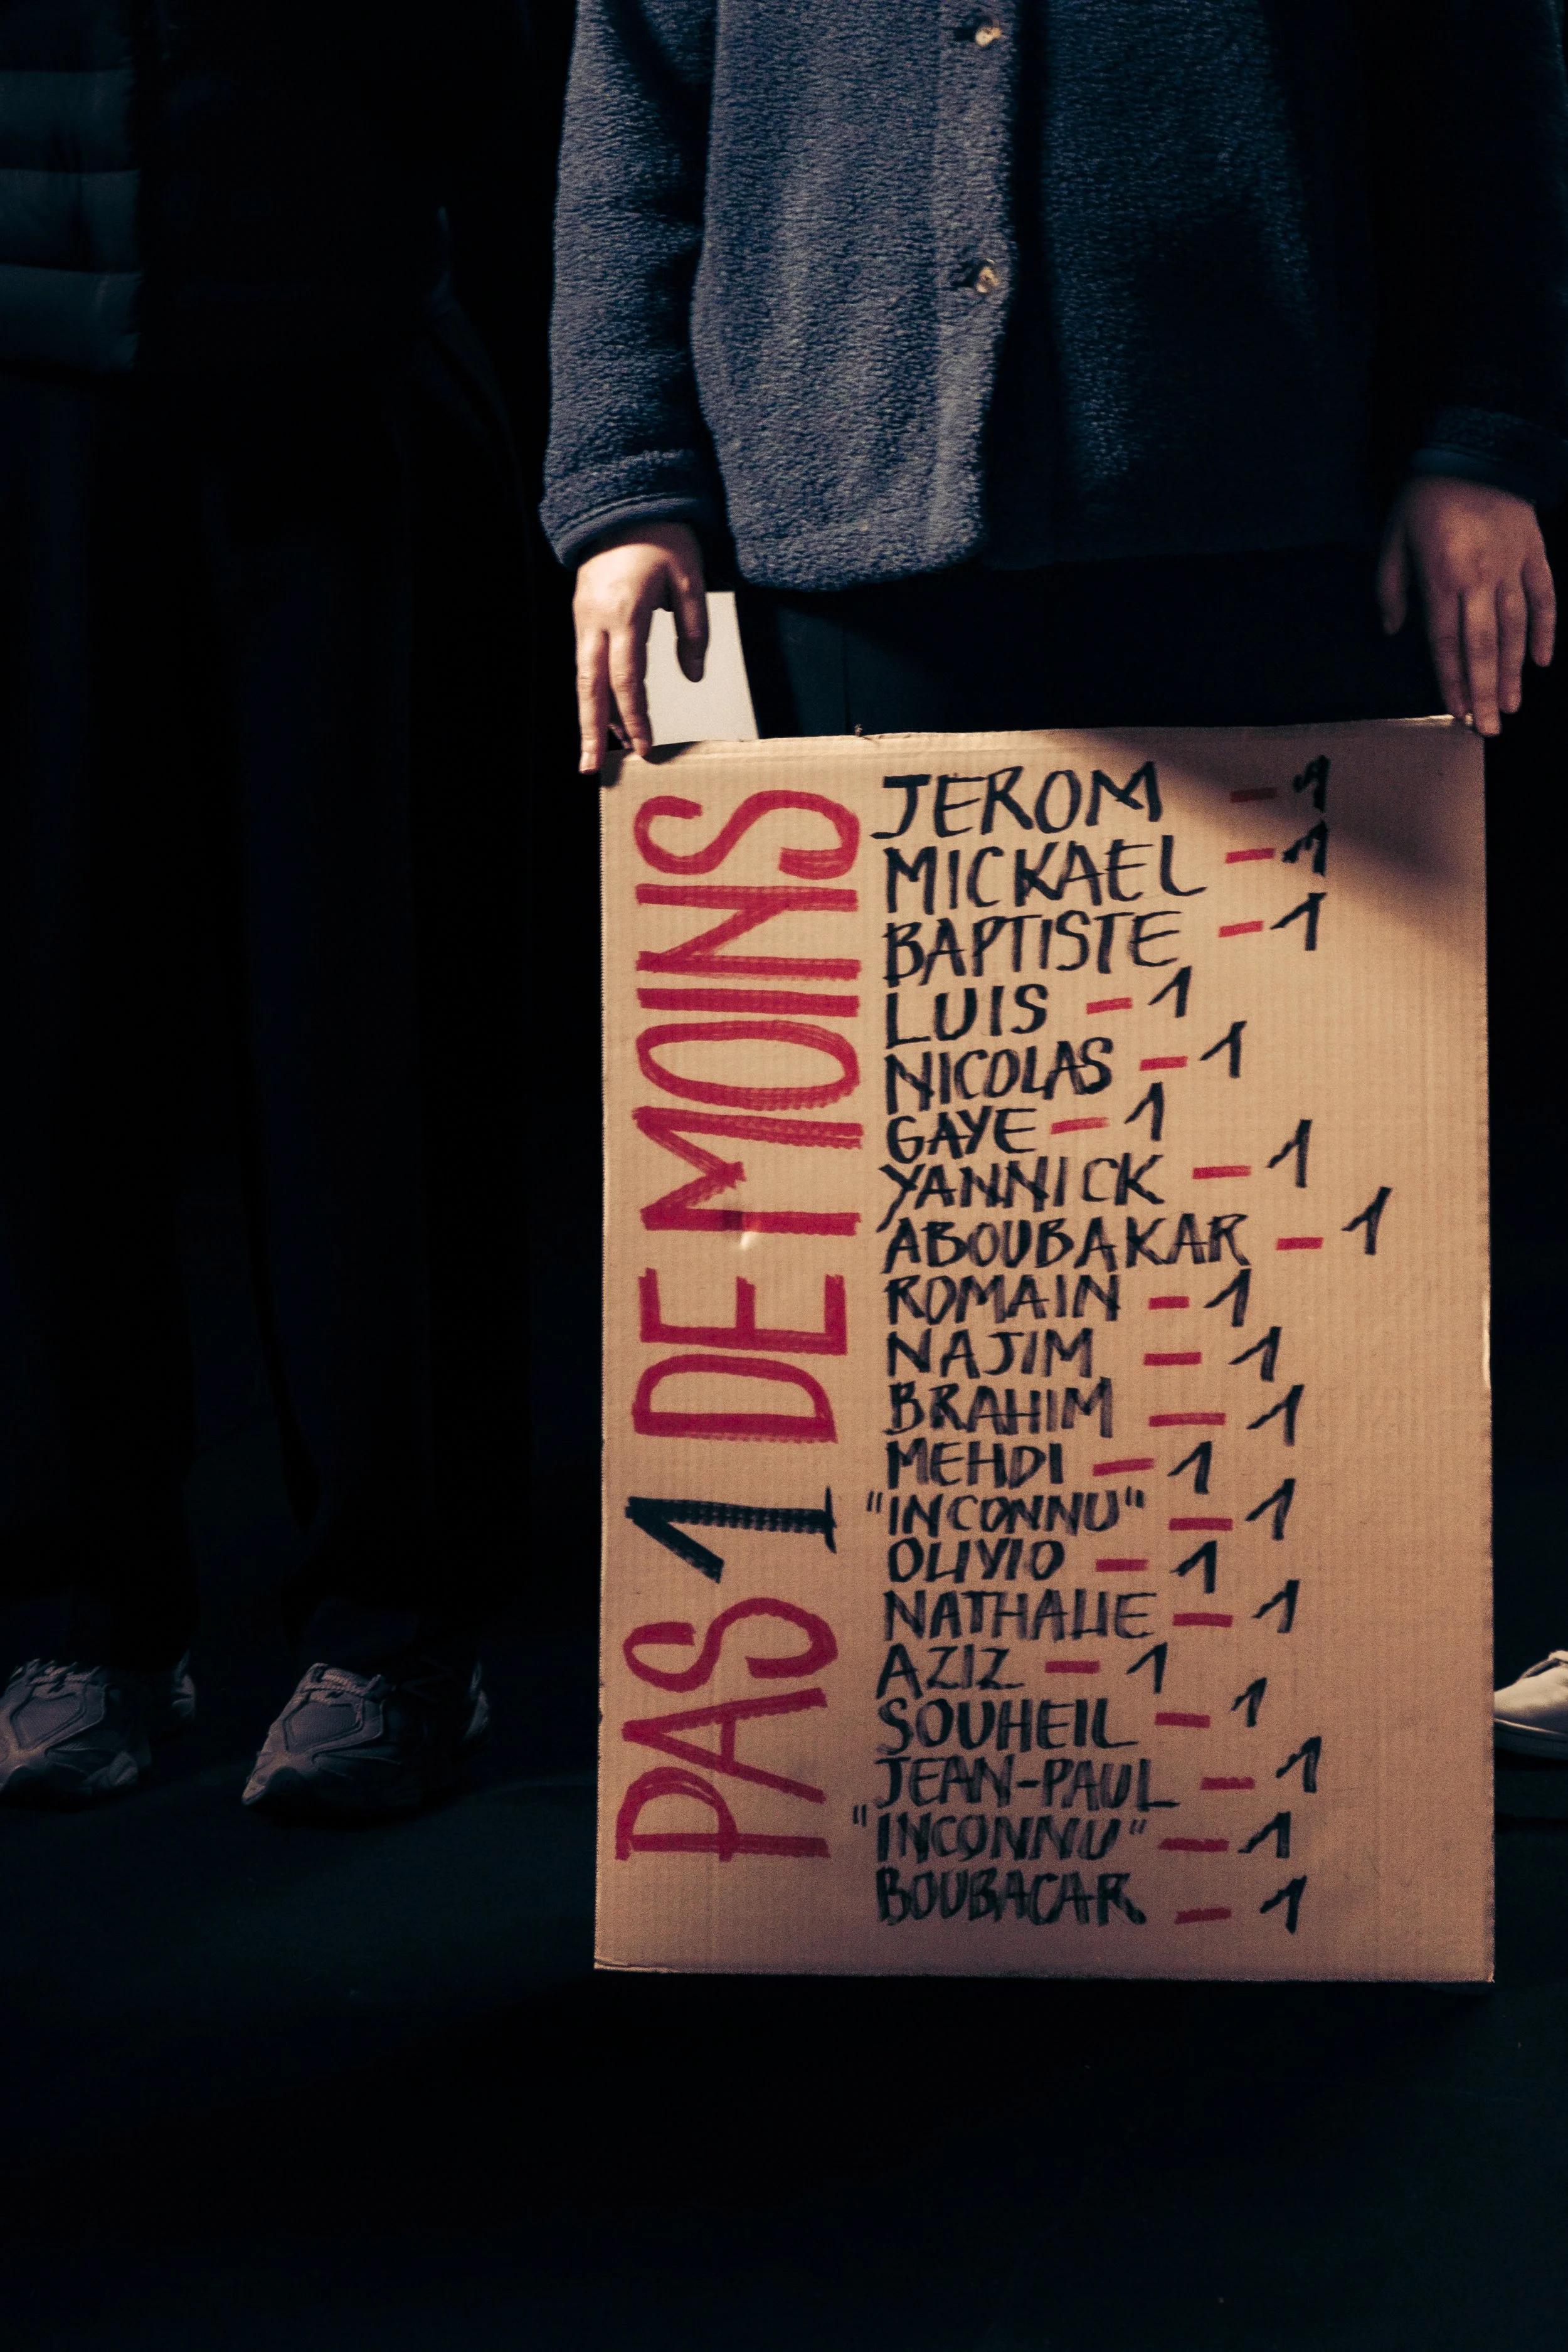 PAS 1 DE MOINS
JEROM - 1
MICKAEL - 1
BAPTISTE - 1
LUIS - 1
NICOLAS - 1
GAYE - 1
YANNICK - 1
ABOUBAKAR - 1
ROMAIN - 1
NAJIM - 1
BRAHIM - 1
MEHDI - 1
"INCONNU" - 1
OLIVIO - 1
NATHALIE - 1
AZIZ - 1
SOUHEIL - 1
JEAN-PAUL - 1
"INCONNU" - 1
BOUBACAR - 1